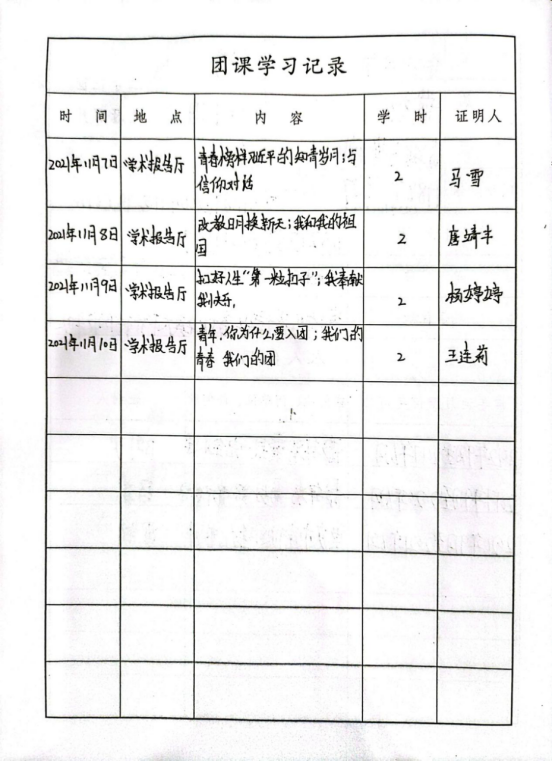 团课学习记录
时 间 地 点 内 容 学 时 证明人
2021年11月7日 学术报告厅 青春榜样习近平的知青岁月；与
信仰对话 2 马雪
2021年11月8日 学术报告厅 敢教日月换新天；我和我的祖
国 2 唐靖丰
2021年11月9日 学术报告厅 扣好人生“第一粒扣子”；我奉献
我快乐 2 杨婷婷
2021年11月10日 学术报告厅 青年，你为什么要入团；我们的
青春 我们的团 2 王连莉